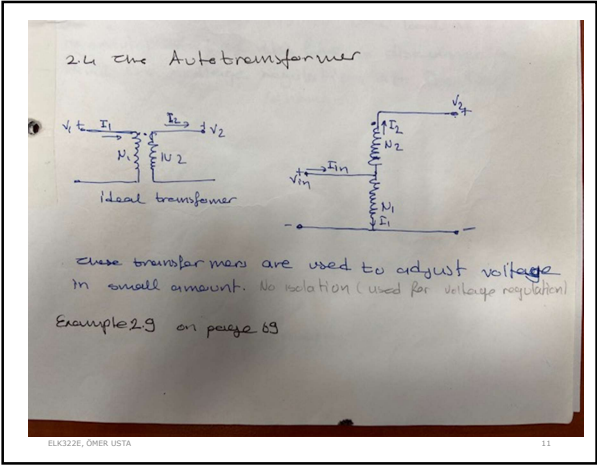 2.4 The Autotransformer
V1 + I1 I2 + V2
N1 N2
ideal transfomer
V2+
I2
N2
Vin+ Iin
N1
I1
- -
These transformers are used to adjust voltage
in small amount. No isolation (used for voltage regulation)
Example 2.9 on page 69
ELK322E, ÖMER USTA 11